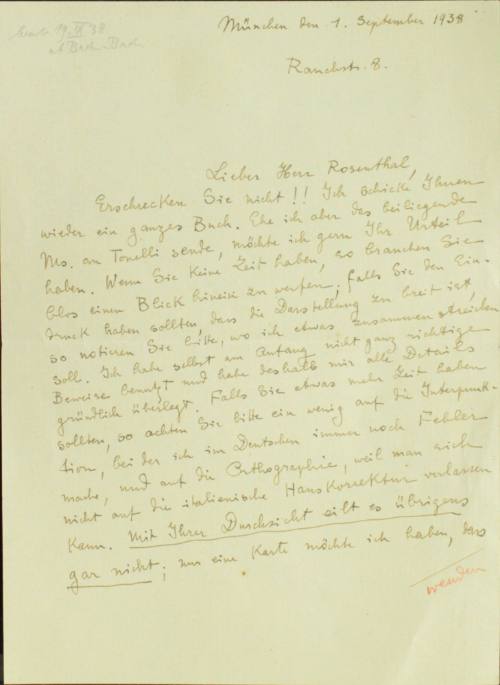 München den 1. September 1938
Rauchstr. 8.
Lieber Herr Rosenthal,
Erschrecken Sie nicht!! Ich schicke Ihnen
wieder ein ganzes Buch. Ehe ich aber das beiliegende
Ms. an Tonelli sende, möchte ich gern Ihr Urteil
haben. Wenn Sie keine Zeit haben, so brauchen Sie
blos einen Blick hinein zu werfen, falls Sie den Ein-
druck haben sollten, dass die Darstellung zu breit ist,
so notieren Sie bitte, wo ich etwas zusammenstreichen
soll. Ich habe selbst am Anfang nicht ganz richtige
Beweise benutzt und habe deshalb mir alle Details
gründlich überlegt. Falls Sie etwas mehr Zeit haben
sollten, so achten Sie bitte ein wenig auf die Interpunk-
tion, bei der ich im Deutschen immer noch Fehler
mache, und auf die Orthographie, weil man sich
nicht auf die italienische Hauskorrektur verlassen
kann. Mit Ihrer Durchsicht eilt es übrigens
gar nicht; nur eine Karte möchte ich haben, dass
wenden